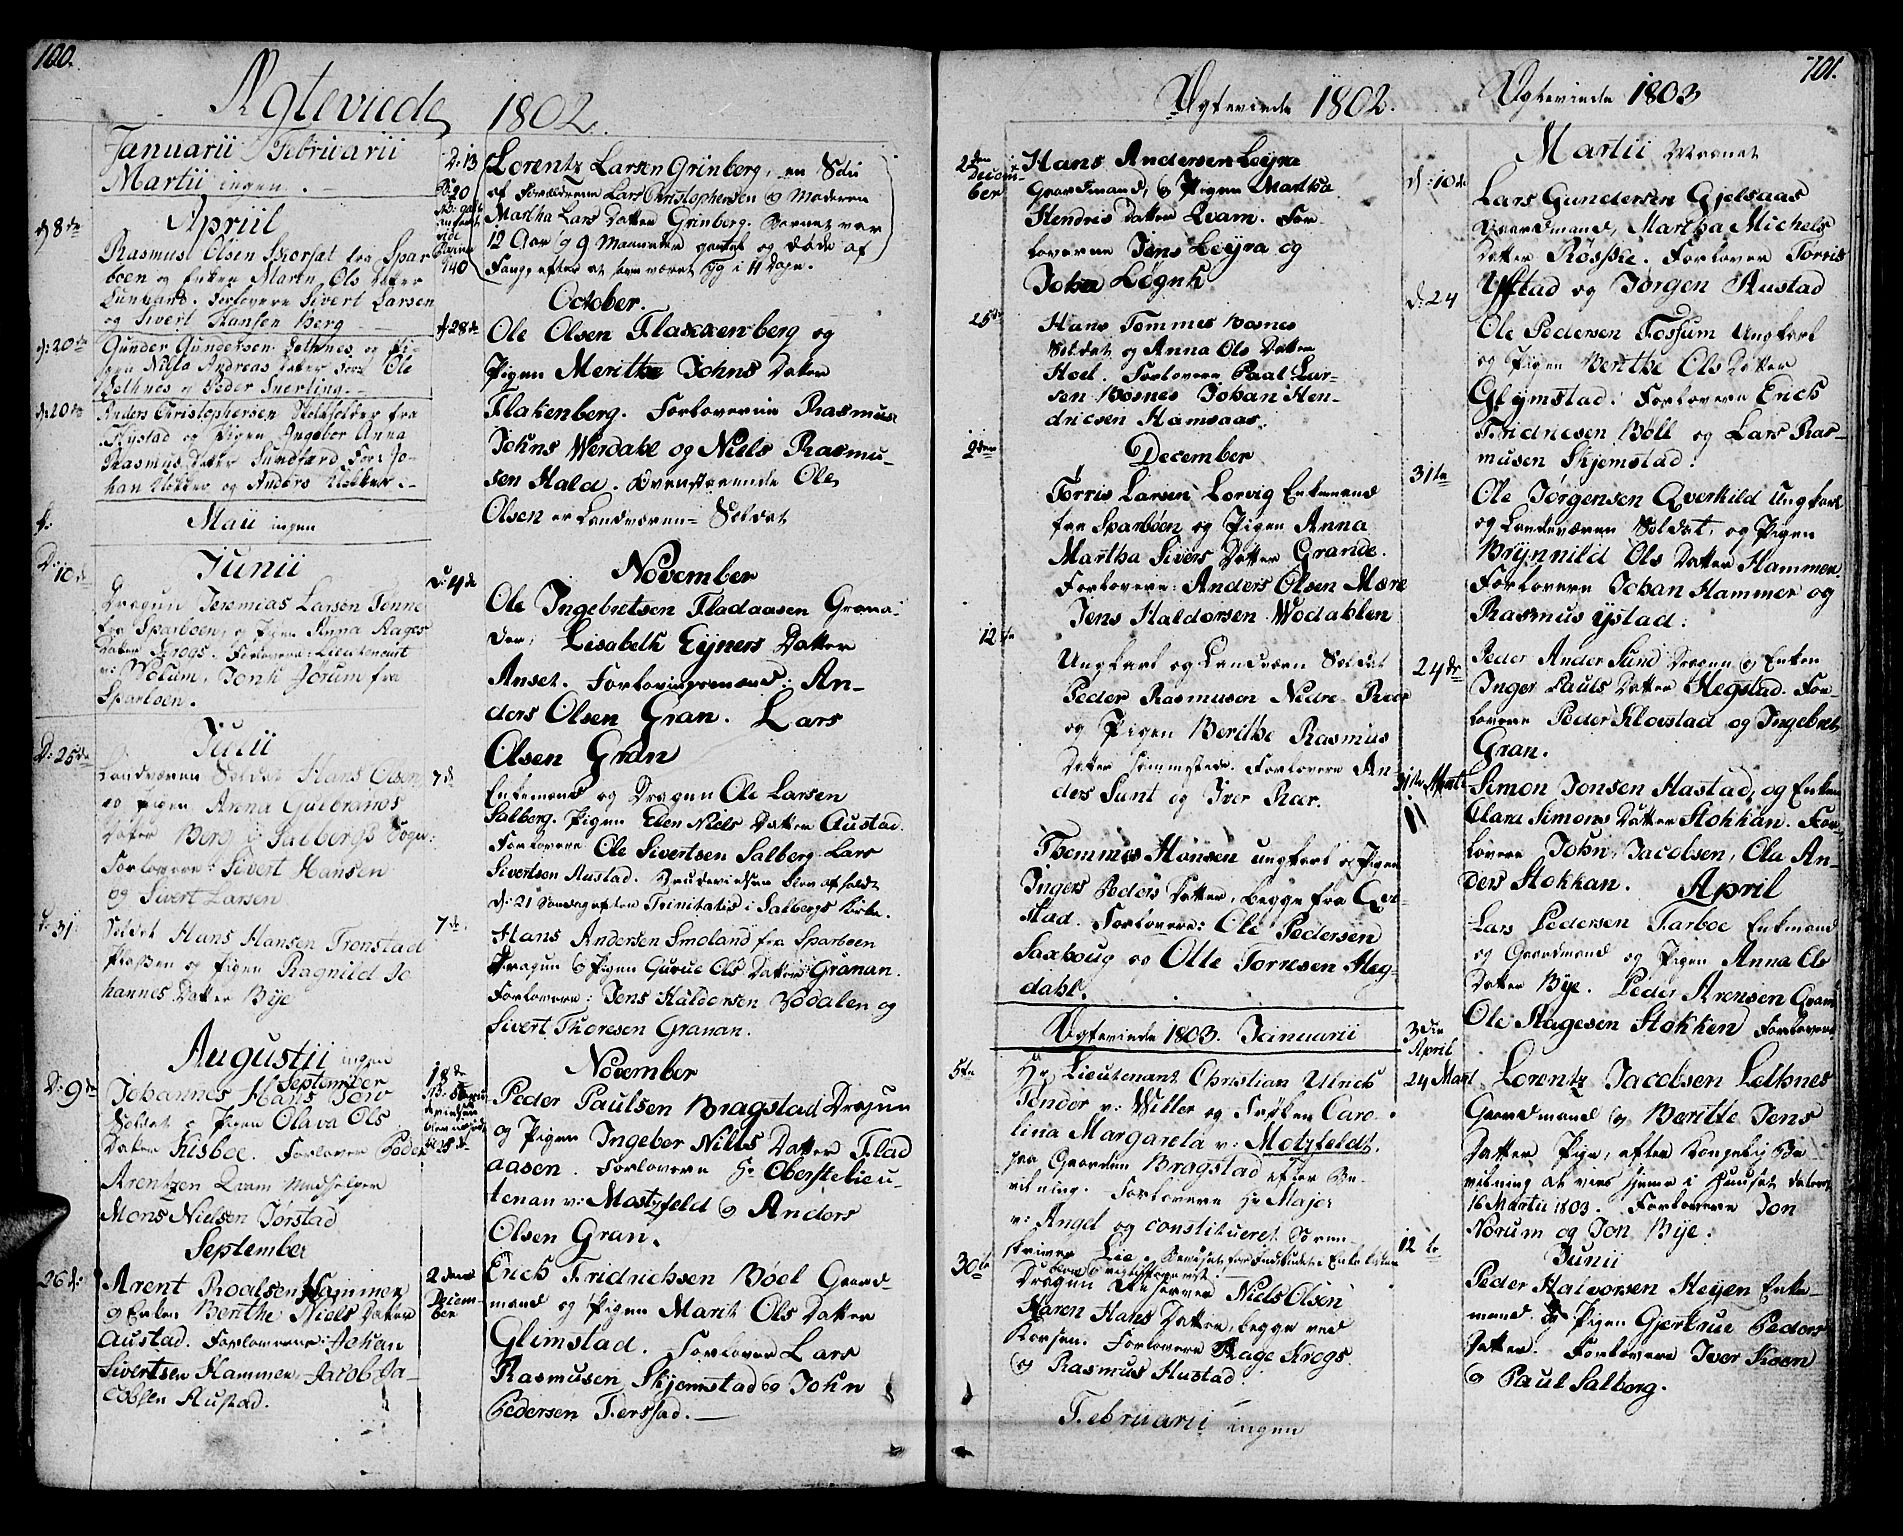 100.
Ægteviede 1802.
Januarii Februarii
Martii ingen.
Apriil
d. 8de
Rasmus Olsen Skorsat fra Spar
boen og Enken Martha Ols Datter
Lundand. Forlovere Sivert Larsen
og Sivert Hansen Berg
d: 20de
Gunder Gundersen Lethnes og Pi-
gen Nilla Andreas Datter Forl Ole
Lethnes og Peder Suerling.
d: 20de
Anders Christophersen fra
Ystad og Pigen Ingebor Anna
Rasmus Datter Sundfærd. Forl Jo-
han og Anders
Maii ingen
Junii
D: 10de
Dragun Jeremias Larsen Tenne
fra Sparboen, og Pigen Anna Aages
Datter Krogs. Forlovere: Lieutenant
v: Wolum, Jonk Jørum fra
Sparboen.
Julii
D: 25de
Landværn Soldat Hans Olsen
og Pigen Anna Gulbrands
Datter Berg i Salbergs Sogn:
Forlovere: Sivert Hansen
og Sivert Larsen
d: 31
Soldat Hans Hansen Tronstad
Pladsen og Pigen Ragnild Jo
hannes Datter Bye
Augustii ingen
September
D: 9de
Johannes Hans Torp
Soldat og Pigen Olava Ols
Datter Hisboe. Forlover Peder
Arentzen Qvam Madhelger
Mons Nielsen Jørstad
September
26d:
Arent Roalsen Hammer
og Enken Berithe Niels Datter
Austad. Forlovere: Johan
Sivertsen Hammer, Jacob Ja-
cobsen Austad.
D: 13
D: 20
Lorentz Larsen Grinberg, en Søn
af Forældrene Lars Christophersen og Moderen
Martha Lars Datter Grinberg. Barnet var
12 Aar og 9 Maaneder gammel og døde af
Fang efter at have været syg i 11 Dage.
October.
d: 28de
Ole Olsen Flakkenberg og
Pigen Merithe Johns Datter
Flakenberg. Forloverne Rasmus
Johns Werdahl og Niels Rasmu-
sen Hald. Ovenstaaende Ole
Olsen er Landværn-Soldat
November
d: 4de
Ole Ingebretsen Fladaasen Grena-
der, Lisabeth Ejners Datter
Anset. Forlovingsmænd: An-
ders Olsen Gran. Lars
Olsen Gran
7de
Enkemand og Dragun Ole Larsen
Salberg. Pigen Elen Niels Datter Austad.
Forlovere Ole Sivertsen Salberg Lars
Sivertsen Austad. Brudevielsen blev afholdt
d: 21 Søndag efter Trinitatis i Salbergs Kirke.
7de.
Hans Andersen Smoland fra Sparboen
Dragun og Pigen Gurue Ols Datter Granan.
Forlovere: Jens Haldorsen Wodalen og
Sivert Thoresen Granan.
November
18de
Peder Paulsen Bragstad Dragun
og Pigen Ingeber Nills Datter Flad
aasen. Forlovere Hr Oberstelieu-
tenan v: Motzfeld og Anders
Olsen Gran.
2den
Decem-
ber
Erich Fridrichsen Böel Gaard
mand og Pigen Marit Ols Datter
Glimstad. Forlover Lars
Rasmusen Skjemstad og John
Pedersen Ferstad.
101.
Ægteviede 1802.
2den
Decem-
ber
Hans Andersen Leyra
Gaardmand, og Pigen Martha
Hendris Datter Qvam. For
loverne Jens Leyra og
Johan Løgnh
25de
Hans Tommes Bosnes
Soldat og Anna Ols Datter
Hoel. Forlovere Paal Lar-
sen Bosnes Johan Hen-
dricsen Hamsaas.
December
9den
Torris Larsen Lorvig Enkemand
fra Sparboen og Pigen Anna
Martha Sivers Datter Grande.
Forlovere: Anders Olsen Mære
Jens Haldorsen Wodahlen
12te
Ungkarl og Landværn Soldat
Peder Rasmusen Nedre Rær
og Pigen Berithe Rasmus
Datter sammestede. Forlovere An-
ders Sunt og Iver Rær.
Thommes Hansen ungkarl og Pigen
Ingers Peders Datter, begge fra Qvi-
stad. Forlovere: Ole Pedersen
Saxhoug og Olle Torresen Heg-
dahl.
Ægteviede 1803. Januarii
5te
Hr Lieutenant Christian Ulrich
Tønder v: Willer og Frøken Caro-
lina Margareta v: Motzfeldt.
paa Gaarden Bragstad efter Be-
vilning. Forlovere Hr Major
v: Angel og constitueret Soren-
skriver Lie
30te
Dragun Niels Olsen
Karen Hans Datter, begge ved
Korsen. Forlovere Aage Krogs.
og Rasmus Hustad.
Februarii ingen
Ægteviede 1803
Martii Maanet
d: 10de
Lars Gundersen Gjelsaas
Gaardmand, Martha Michels
Datter Røsske. Forlover Torris
Ystad og Jørgen Rustad
d. 24
Ole Pedersen Fossum Ungkarl
og Pigen Berithe Ols Datter
Glymstad. Forlovere Erich
Fridricsen Böll og Lars Ras-
musen Skjemstad.
31te
Ole Jørgensen Qverkild Ungkarl
og Landeværn Soldat, og Pigen
Brynnild Ols Datter Hammer.
Forlovere Johan Hammer og
Rasmus ystad:
24de
Peder Ander Sund Dragun og Enken
Inger Pauls Datter Hegstad. For-
lovere Peder Klovstad og Ingebret
Gran.
31te Mart
Simon Jonsen Hastad, og Enken
Clara Simons Datter Stokkan. For-
lovere John Jacobsen, Ole An-
ders Stokkan.
April
Lars Pedersen Tarboe Enkmand
og Gaardmand og Pigen Anna Ols
Datter Bye. Peder Arensen Gran
Ole Aagesen Stokken Forlovere
3die
April
24 Mart
Lorentz Jacobsen Lethnes
Gaardmand og Berithe Jens
Datter Pige, efter Kongelig Be
vilning at vies hjemme i Huuset dateret
16 Martii 1803. Forlovere Jon
Norum og Jon Bye:
Junii
12te
Peder Halvorsen Heyen Enke
mand og Pigen Gjertrue Peders
Datter. Forlovere Iver Koen
og Paul Salberg.